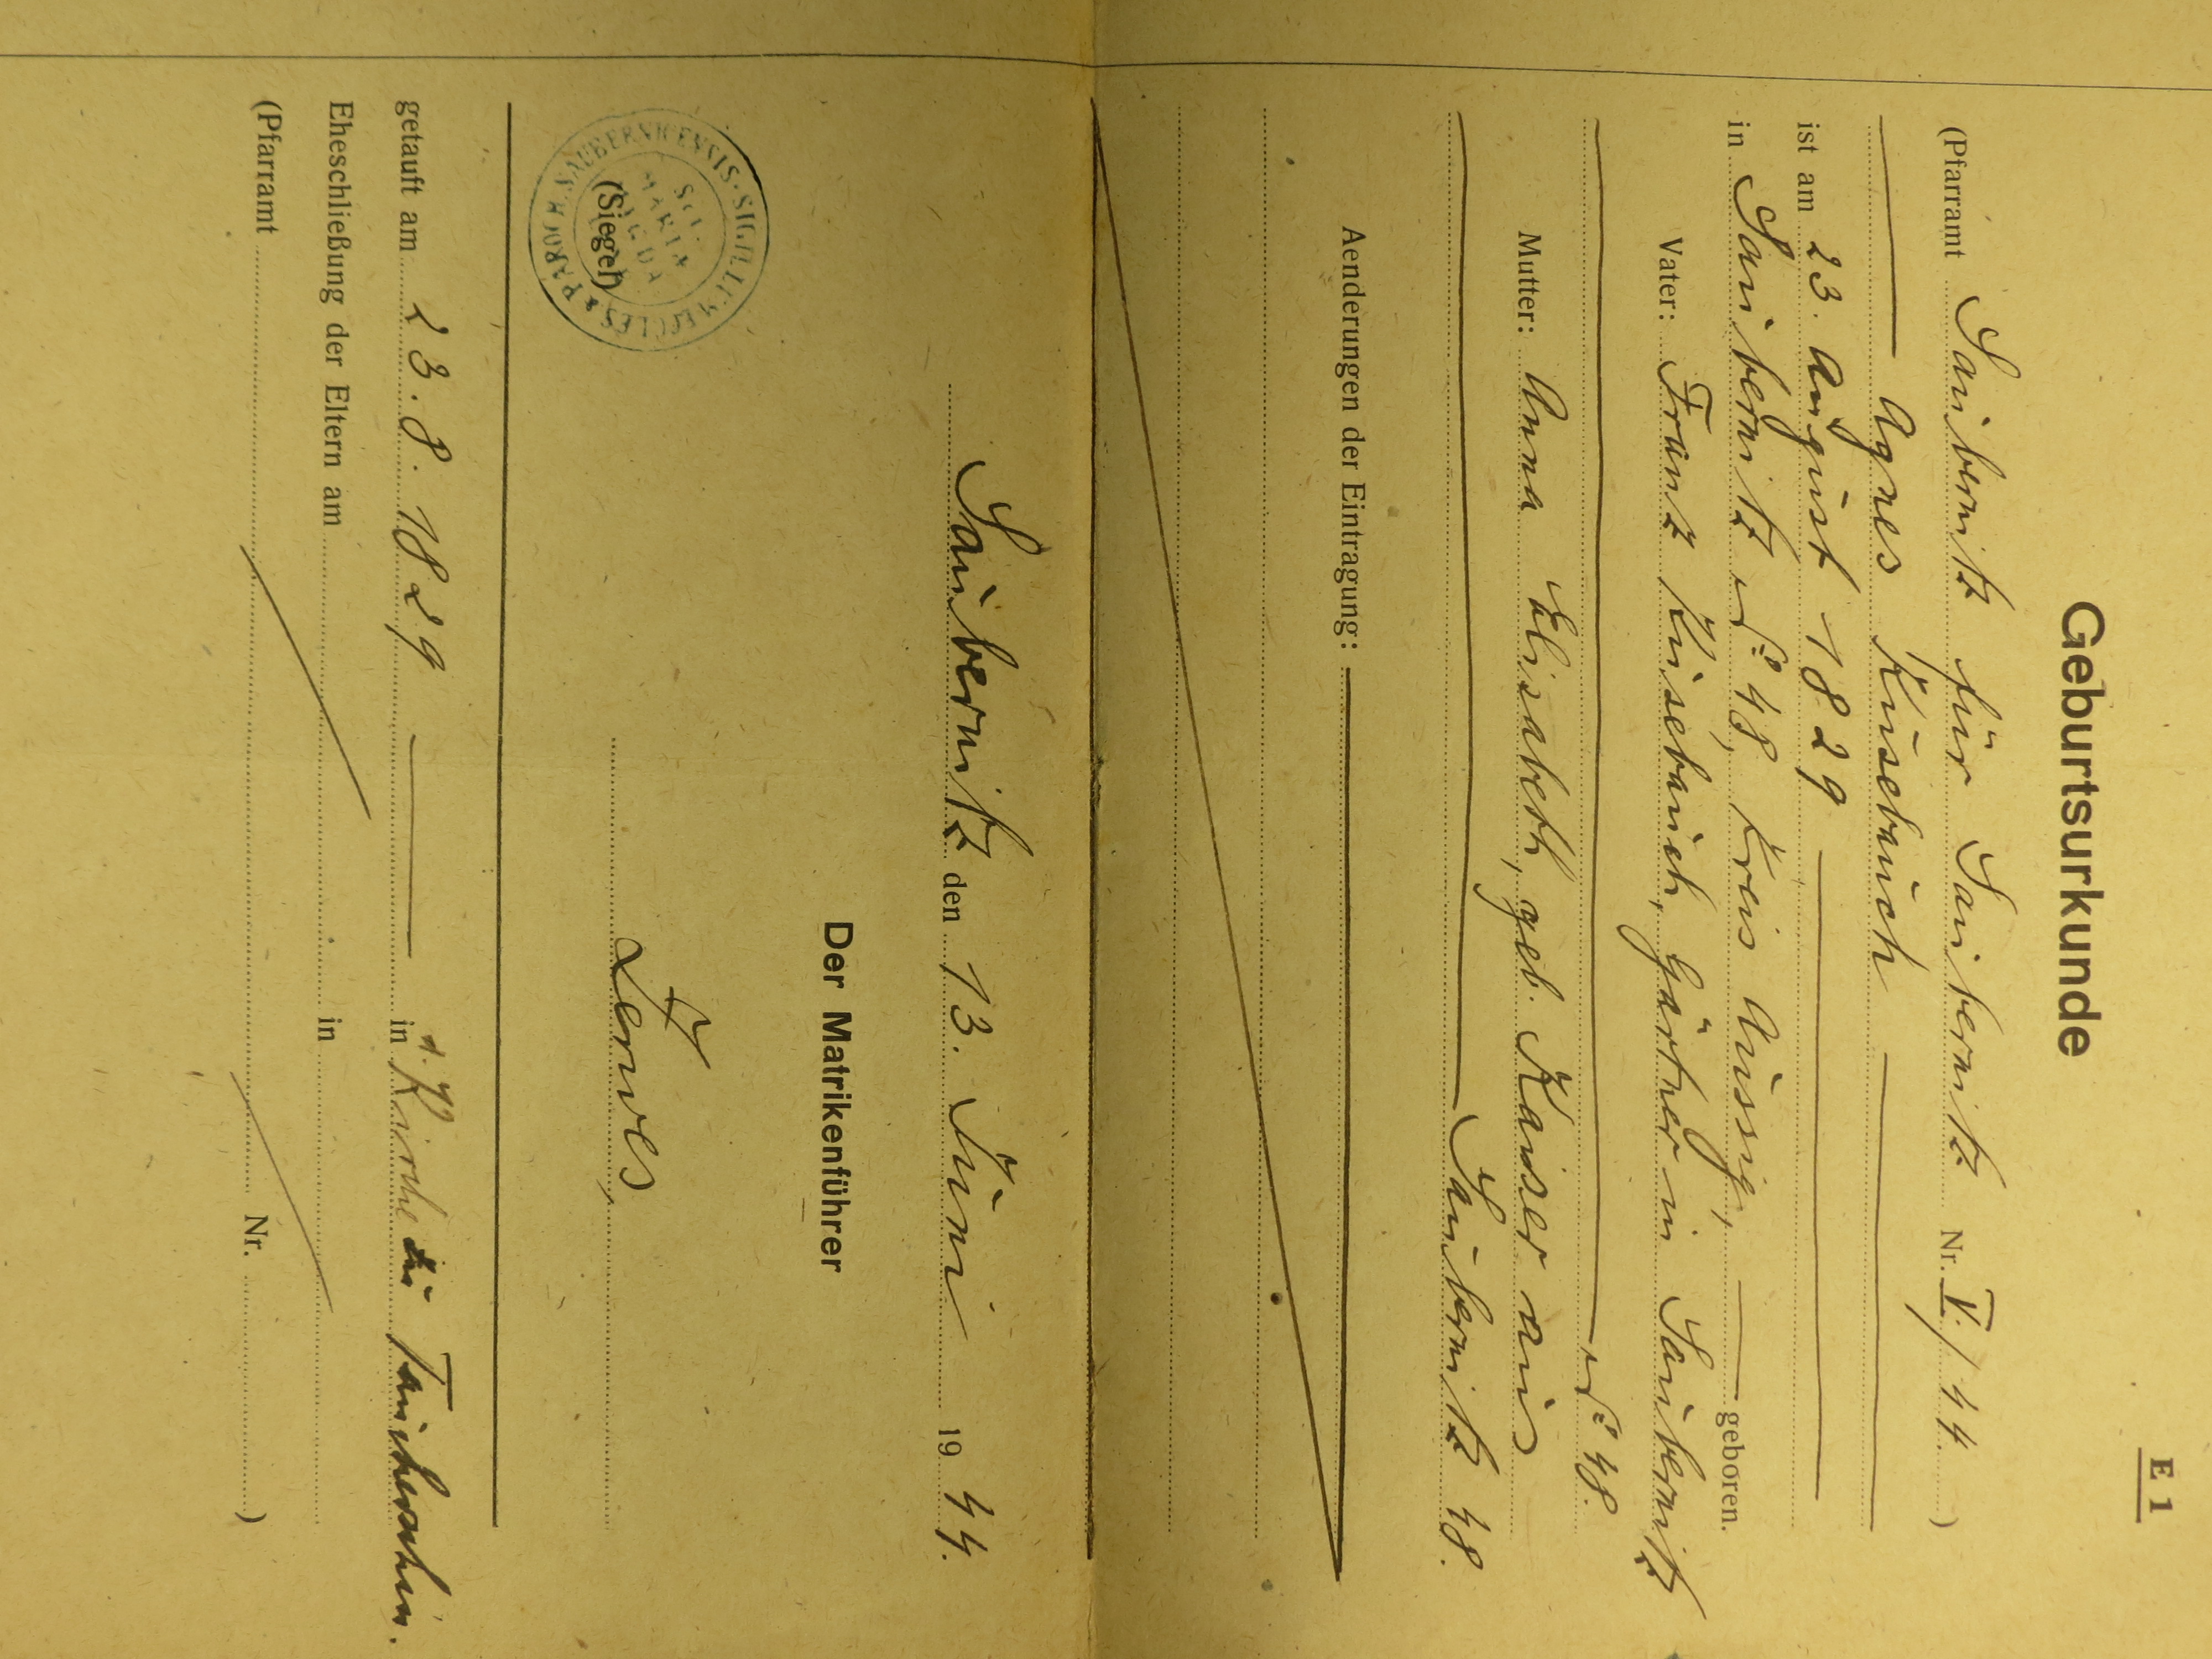 E 1
Geburtsurkunde
(Pfarramt Saubernitz für Saubernitz Nr. V./44. )
Agnes Kusebauch
ist am 23. August 1829
in Saubernitz No 48, Kreis Aussig, geboren.
Vater: Franz Kusebauch, Gärtner in Saubernitz
No 48.
Mutter: Anna Elisabeth, geb. Kaiser aus
Saubernitz 48.
Aenderungen der Eintragung:
Saubernitz den 13. Juni 1944.
Der Matrikenführer
SIGILLUM ECCLES & PAROCH. SAUBERNICENSIS
Sct. MARIA MAGDA
(Siegel)
getauft am 23.8.1829 in d. Kirche zu Taucherschin.
Eheschließung der Eltern am in
(Pfarramt Nr. )